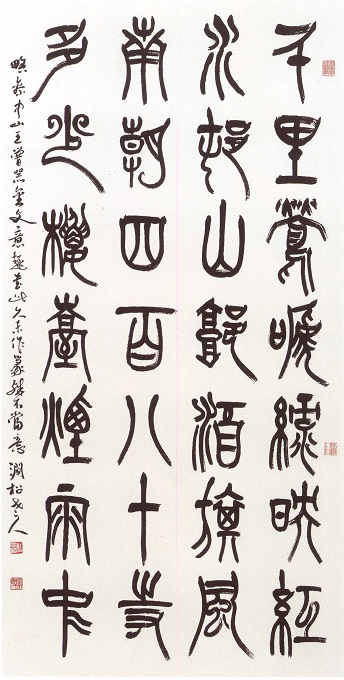 千里鶯嗁綠映紅
水邨山郭酒旗風
南朝四百八十寺
多少樓臺煙雨中
略參中山王嚳器金文意趣書此久未作篆殊不當意澗松老人